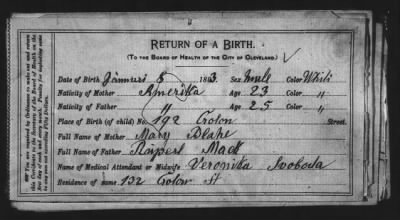 RETURN OF A BIRTH.
(TO THE BOARD OF HEALTH OF THE CITY OF CLEVELAND.)
Date of Birth Januari 8 1883. Sex Male Color White
Nativity of Mother Amerika Age 23 Color "
Nativity of Father " Age 25 Color "
Place of Birth (of child) No. 192 Croton Street.
Full Name of Mother Mary Blake
Full Name of Father Mack
Name of Medical Attendant or Midwife Veronika Svoboda
Residence of same 132 Croton St